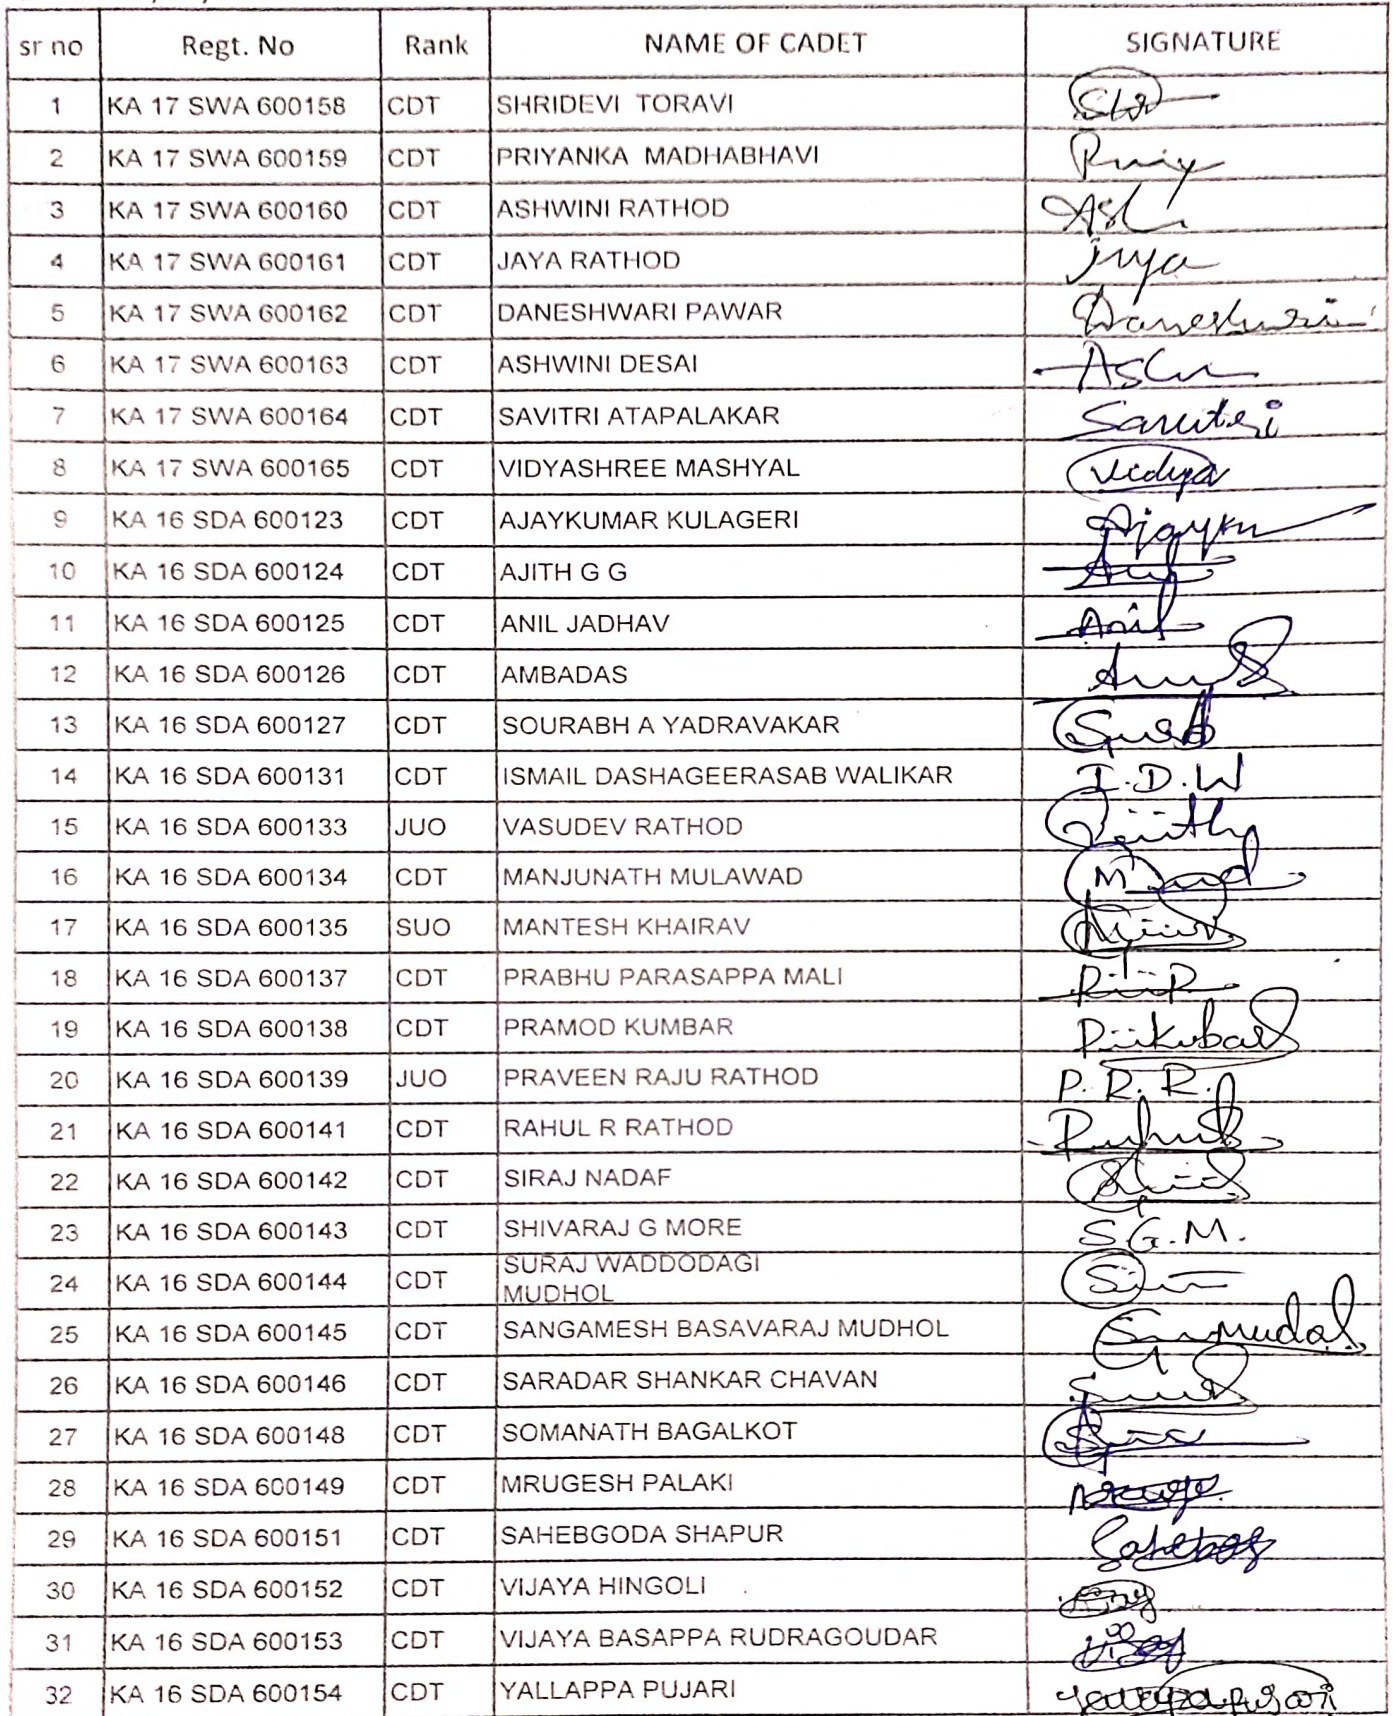 sr no Regt. No Rank NAME OF CADET SIGNATURE
1 KA 17 SWA 600158 CDT SHRIDEVI TORAVI
2 KA 17 SWA 600159 CDT PRIYANKA MADHABHAVI Priy
3 KA 17 SWA 600160 CDT ASHWINI RATHOD
4 KA 17 SWA 600161 CDT JAYA RATHOD
5 KA 17 SWA 600162 CDT DANESHWARI PAWAR
6 KA 17 SWA 600163 CDT ASHWINI DESAI
7 KA 17 SWA 600164 CDT SAVITRI ATAPALAKAR Savitri
8 KA 17 SWA 600165 CDT VIDYASHREE MASHYAL Vidya
9 KA 16 SDA 600123 CDT AJAYKUMAR KULAGERI Ajayku
10 KA 16 SDA 600124 CDT AJITH G G
11 KA 16 SDA 600125 CDT ANIL JADHAV Anil
12 KA 16 SDA 600126 CDT AMBADAS
13 KA 16 SDA 600127 CDT SOURABH A YADRAVAKAR
14 KA 16 SDA 600131 CDT ISMAIL DASHAGEERASAB WALIKAR I.D.W
15 KA 16 SDA 600133 JUO VASUDEV RATHOD
16 KA 16 SDA 600134 CDT MANJUNATH MULAWAD
17 KA 16 SDA 600135 SUO MANTESH KHAIRAV
18 KA 16 SDA 600137 CDT PRABHU PARASAPPA MALI
19 KA 16 SDA 600138 CDT PRAMOD KUMBAR
20 KA 16 SDA 600139 JUO PRAVEEN RAJU RATHOD P. R. R.
21 KA 16 SDA 600141 CDT RAHUL R RATHOD
22 KA 16 SDA 600142 CDT SIRAJ NADAF
23 KA 16 SDA 600143 CDT SHIVARAJ G MORE S.G.M.
24 KA 16 SDA 600144 CDT SURAJ WADDODAGI
MUDHOL
25 KA 16 SDA 600145 CDT SANGAMESH BASAVARAJ MUDHOL
26 KA 16 SDA 600146 CDT SARADAR SHANKAR CHAVAN
27 KA 16 SDA 600148 CDT SOMANATH BAGALKOT
28 KA 16 SDA 600149 CDT MRUGESH PALAKI
29 KA 16 SDA 600151 CDT SAHEBGODA SHAPUR
30 KA 16 SDA 600152 CDT VIJAYA HINGOLI
31 KA 16 SDA 600153 CDT VIJAYA BASAPPA RUDRAGOUDAR
32 KA 16 SDA 600154 CDT YALLAPPA PUJARI